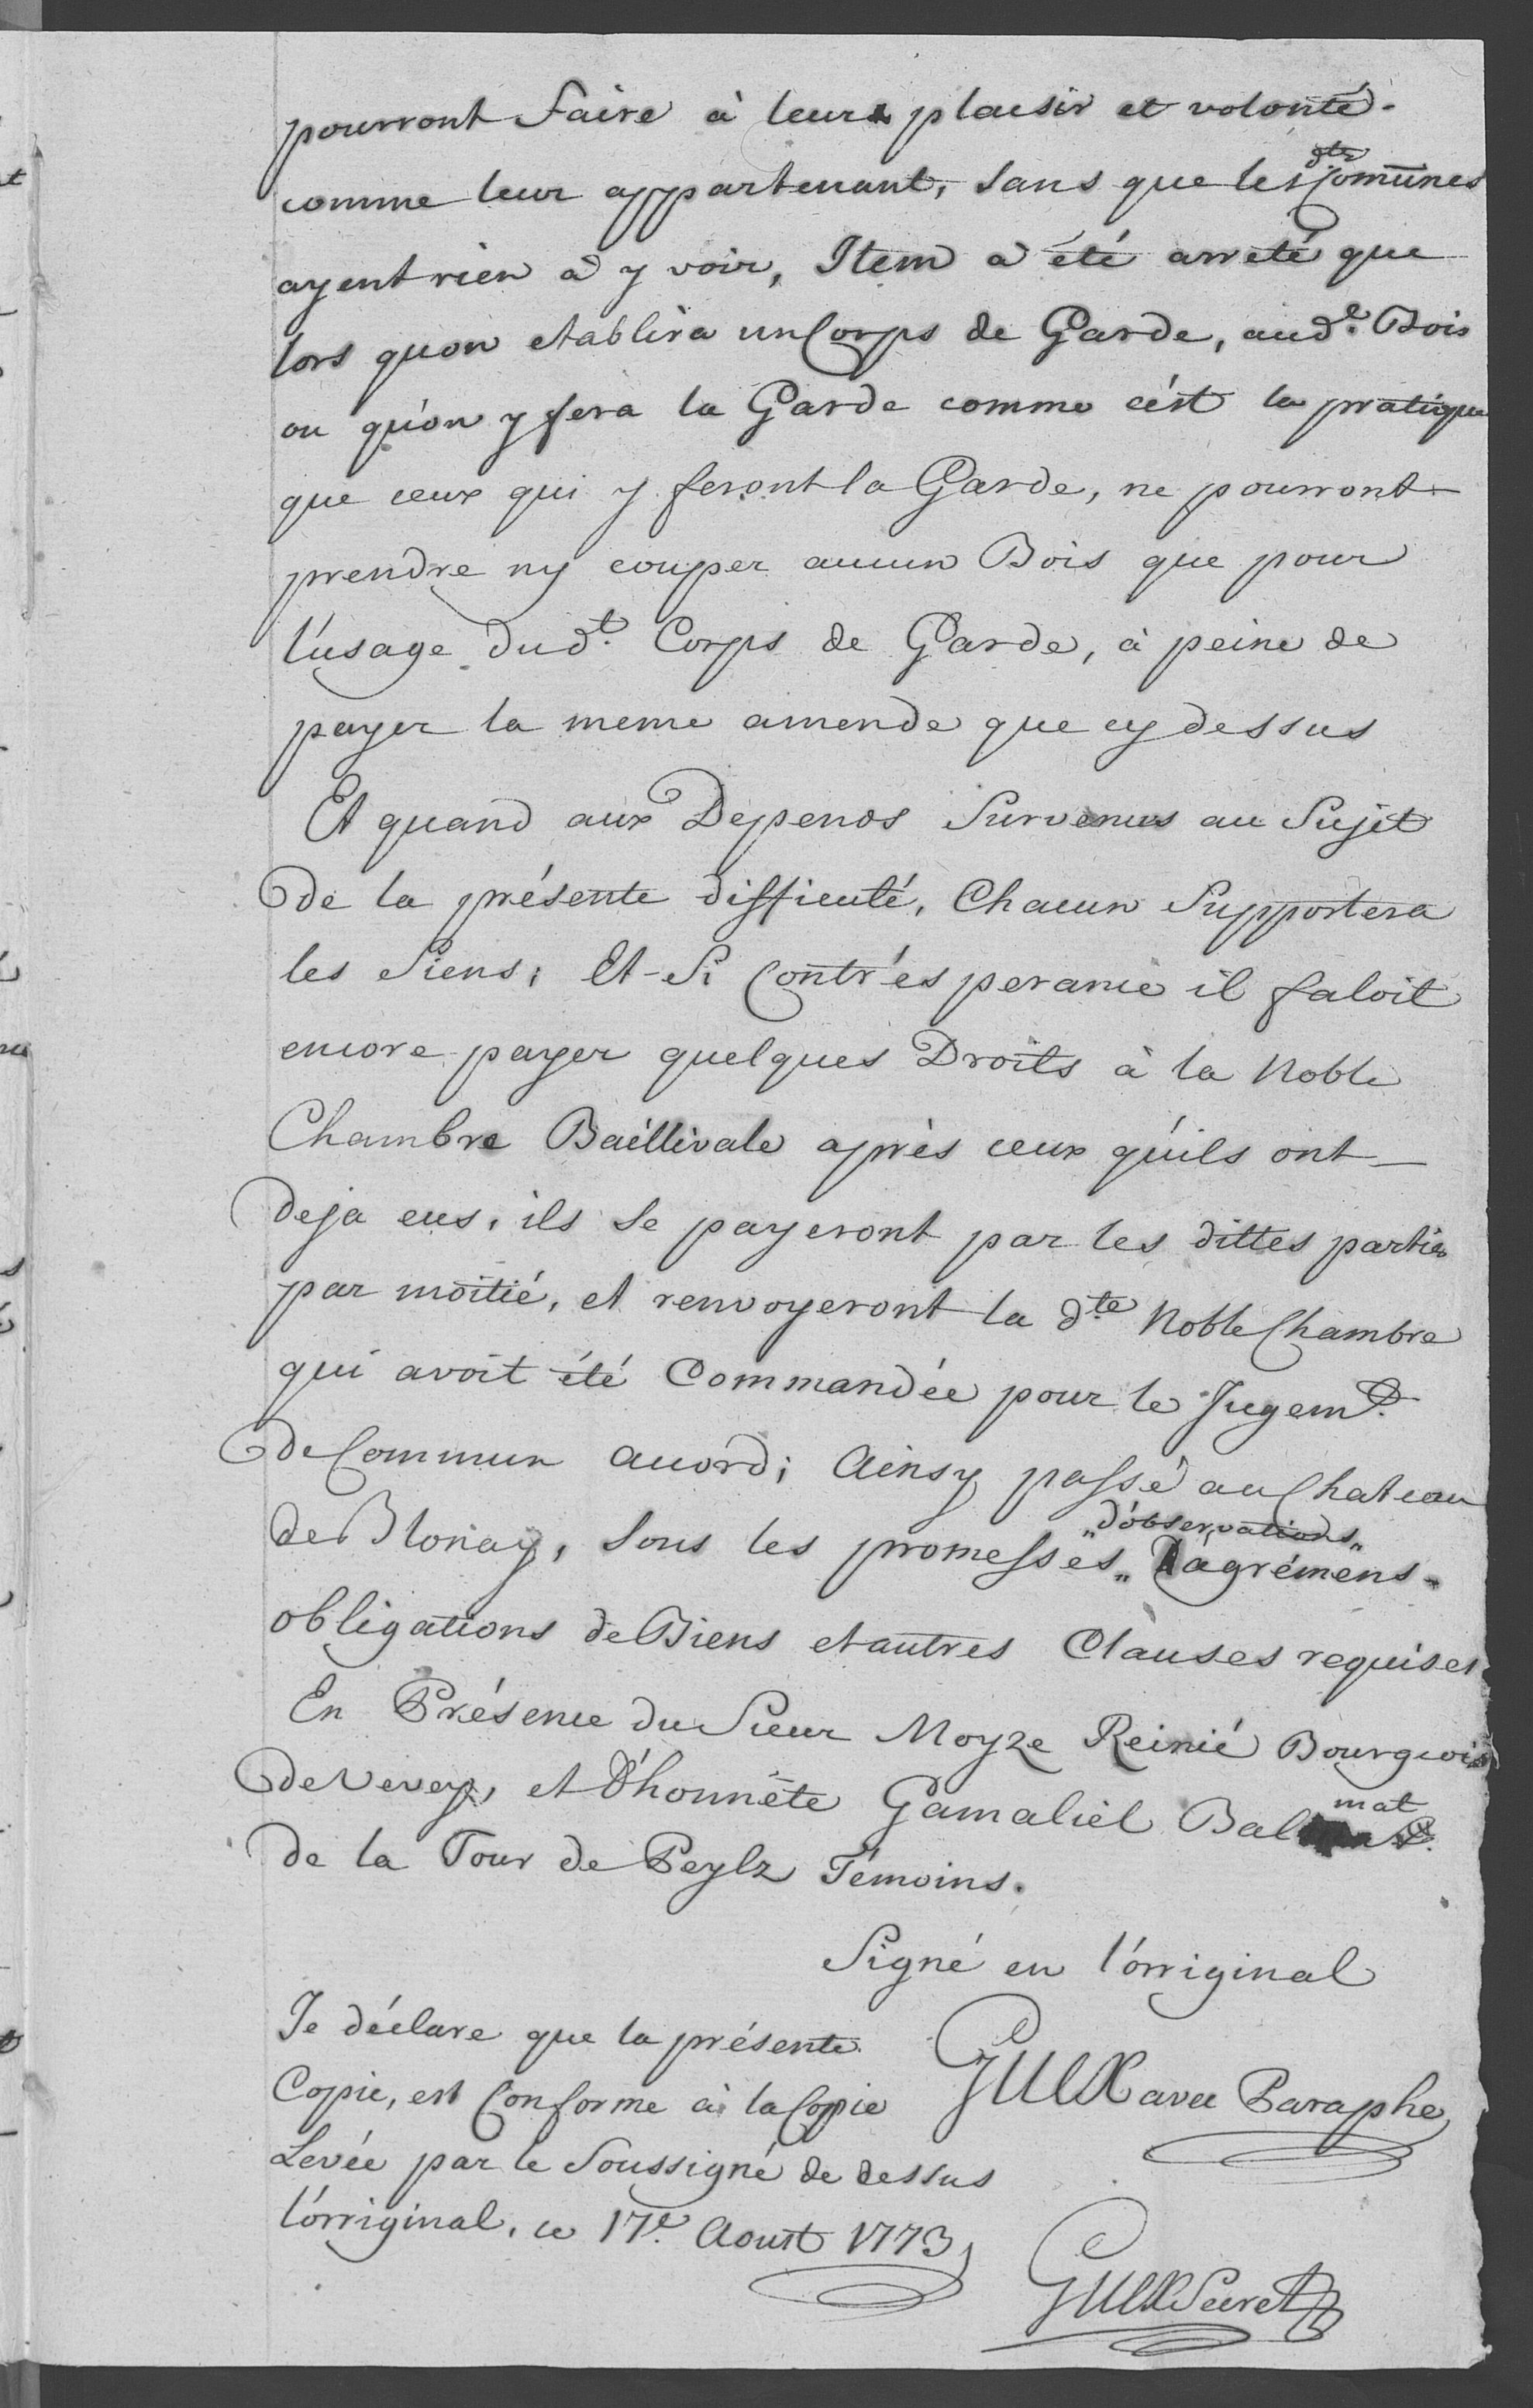 pourront faire à leur plaisir et volonté.
comme leur appartenant, sans que les dtes Comunes
ayent rien à y voir, Item a été arreté que
lors quon etablira un Corps de Garde, aud.t Bois
ou qu'on y fera la Garde comme c'ést la pratique
que ceux qui y feront la Garde, ne pourront
prendre ny couper aucun Bois que pour
l'usage dud.t Corps de Garde, à peine de
payer la meme amende que cy dessus
Et quand aux Depends Survenus au Sujet
de la présente difficulté, Chacun Supportera
les Siens; Et Si Contr'esperance il faloit
encore payer quelques Droits à la Noble
Chambre Baillivale après ceux qu'ils ont
deja eus, ils Se payeront par les dittes parties
par moitié, et renvoyeront la d.te Noble Chambre
qui avoit été Commandée pour le Jugem.t
de Commun accord; Ainsy passé au Chateau
de Blonay, Sous les promesses „d'observations„ d'agrémens
obligations de Biens et autres Clauses requises
En Présence du Sieur Moyze Reinié Bourgeois
de Vevey, et d'honnête Gamaliel Balmat
de la Tour de Peylz Témoins.
Signé en l'orriginal
Je déclare que la présente
Copie, est Conforme à la Copie
GULX avec Paraphe
Levée par le Soussigné de dessus
l'orriginal, ce 17.e Aoust 1773
GULX Secret